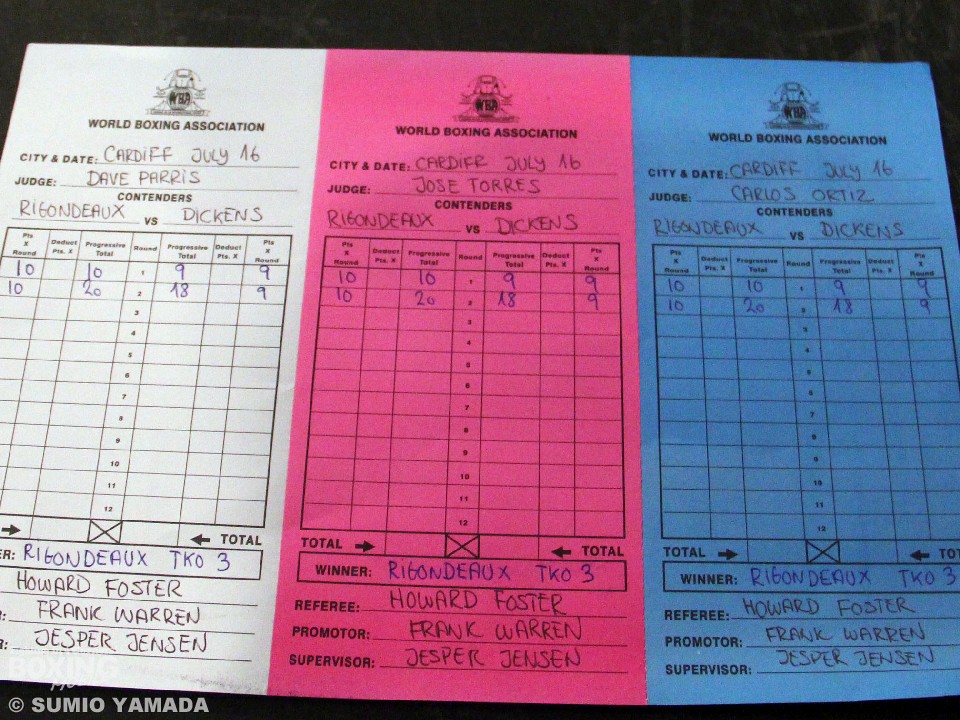 WBA
WORLD BOXING ASSOCIATION
CITY & DATE: CARDIFF JULY 16
JUDGE: DAVE PARRIS
CONTENDERS
RIGONDEAUX VS DICKENS
Pts X Round Deduct Pts. X Progressive Total Round Progressive Total Deduct Pts. X Pts X Round
10 10 1 9 9
10 20 2 18 9
3
4
5
6
7
8
9
10
11
12
TOTAL
ER: RIGONDEAUX TKO 3
HOWARD FOSTER
FRANK WARREN
JESPER JENSEN
WBA
WORLD BOXING ASSOCIATION
CITY & DATE: CARDIFF JULY 16
JUDGE: JOSE TORRES
CONTENDERS
RIGONDEAUX VS DICKENS
Pts X Round Deduct Pts. X Progressive Total Round Progressive Total Deduct Pts. X Pts X Round
10 10 1 9 9
10 20 2 18 9
3
4
5
6
7
8
9
10
11
12
TOTAL TOTAL
WINNER: RIGONDEAUX TKO 3
REFEREE: HOWARD FOSTER
PROMOTOR: FRANK WARREN
SUPERVISOR: JESPER JENSEN
WBA
WORLD BOXING ASSOCIATION
CITY & DATE: CARDIFF JULY 16
JUDGE: CARLOS ORTIZ
CONTENDERS
RIGONDEAUX VS DICKENS
Pts X Round Deduct Pts. X Progressive Total Round Progressive Total Deduct Pts. X Pts X Round
10 10 1 9 9
10 20 2 18 9
3
4
5
6
7
8
9
10
11
12
TOTAL TOTAL
WINNER: RIGONDEAUX TKO 3
REFEREE: HOWARD FOSTER
PROMOTOR: FRANK WARREN
SUPERVISOR: JESPER JENSEN
BOXING
© SUMIO YAMADA